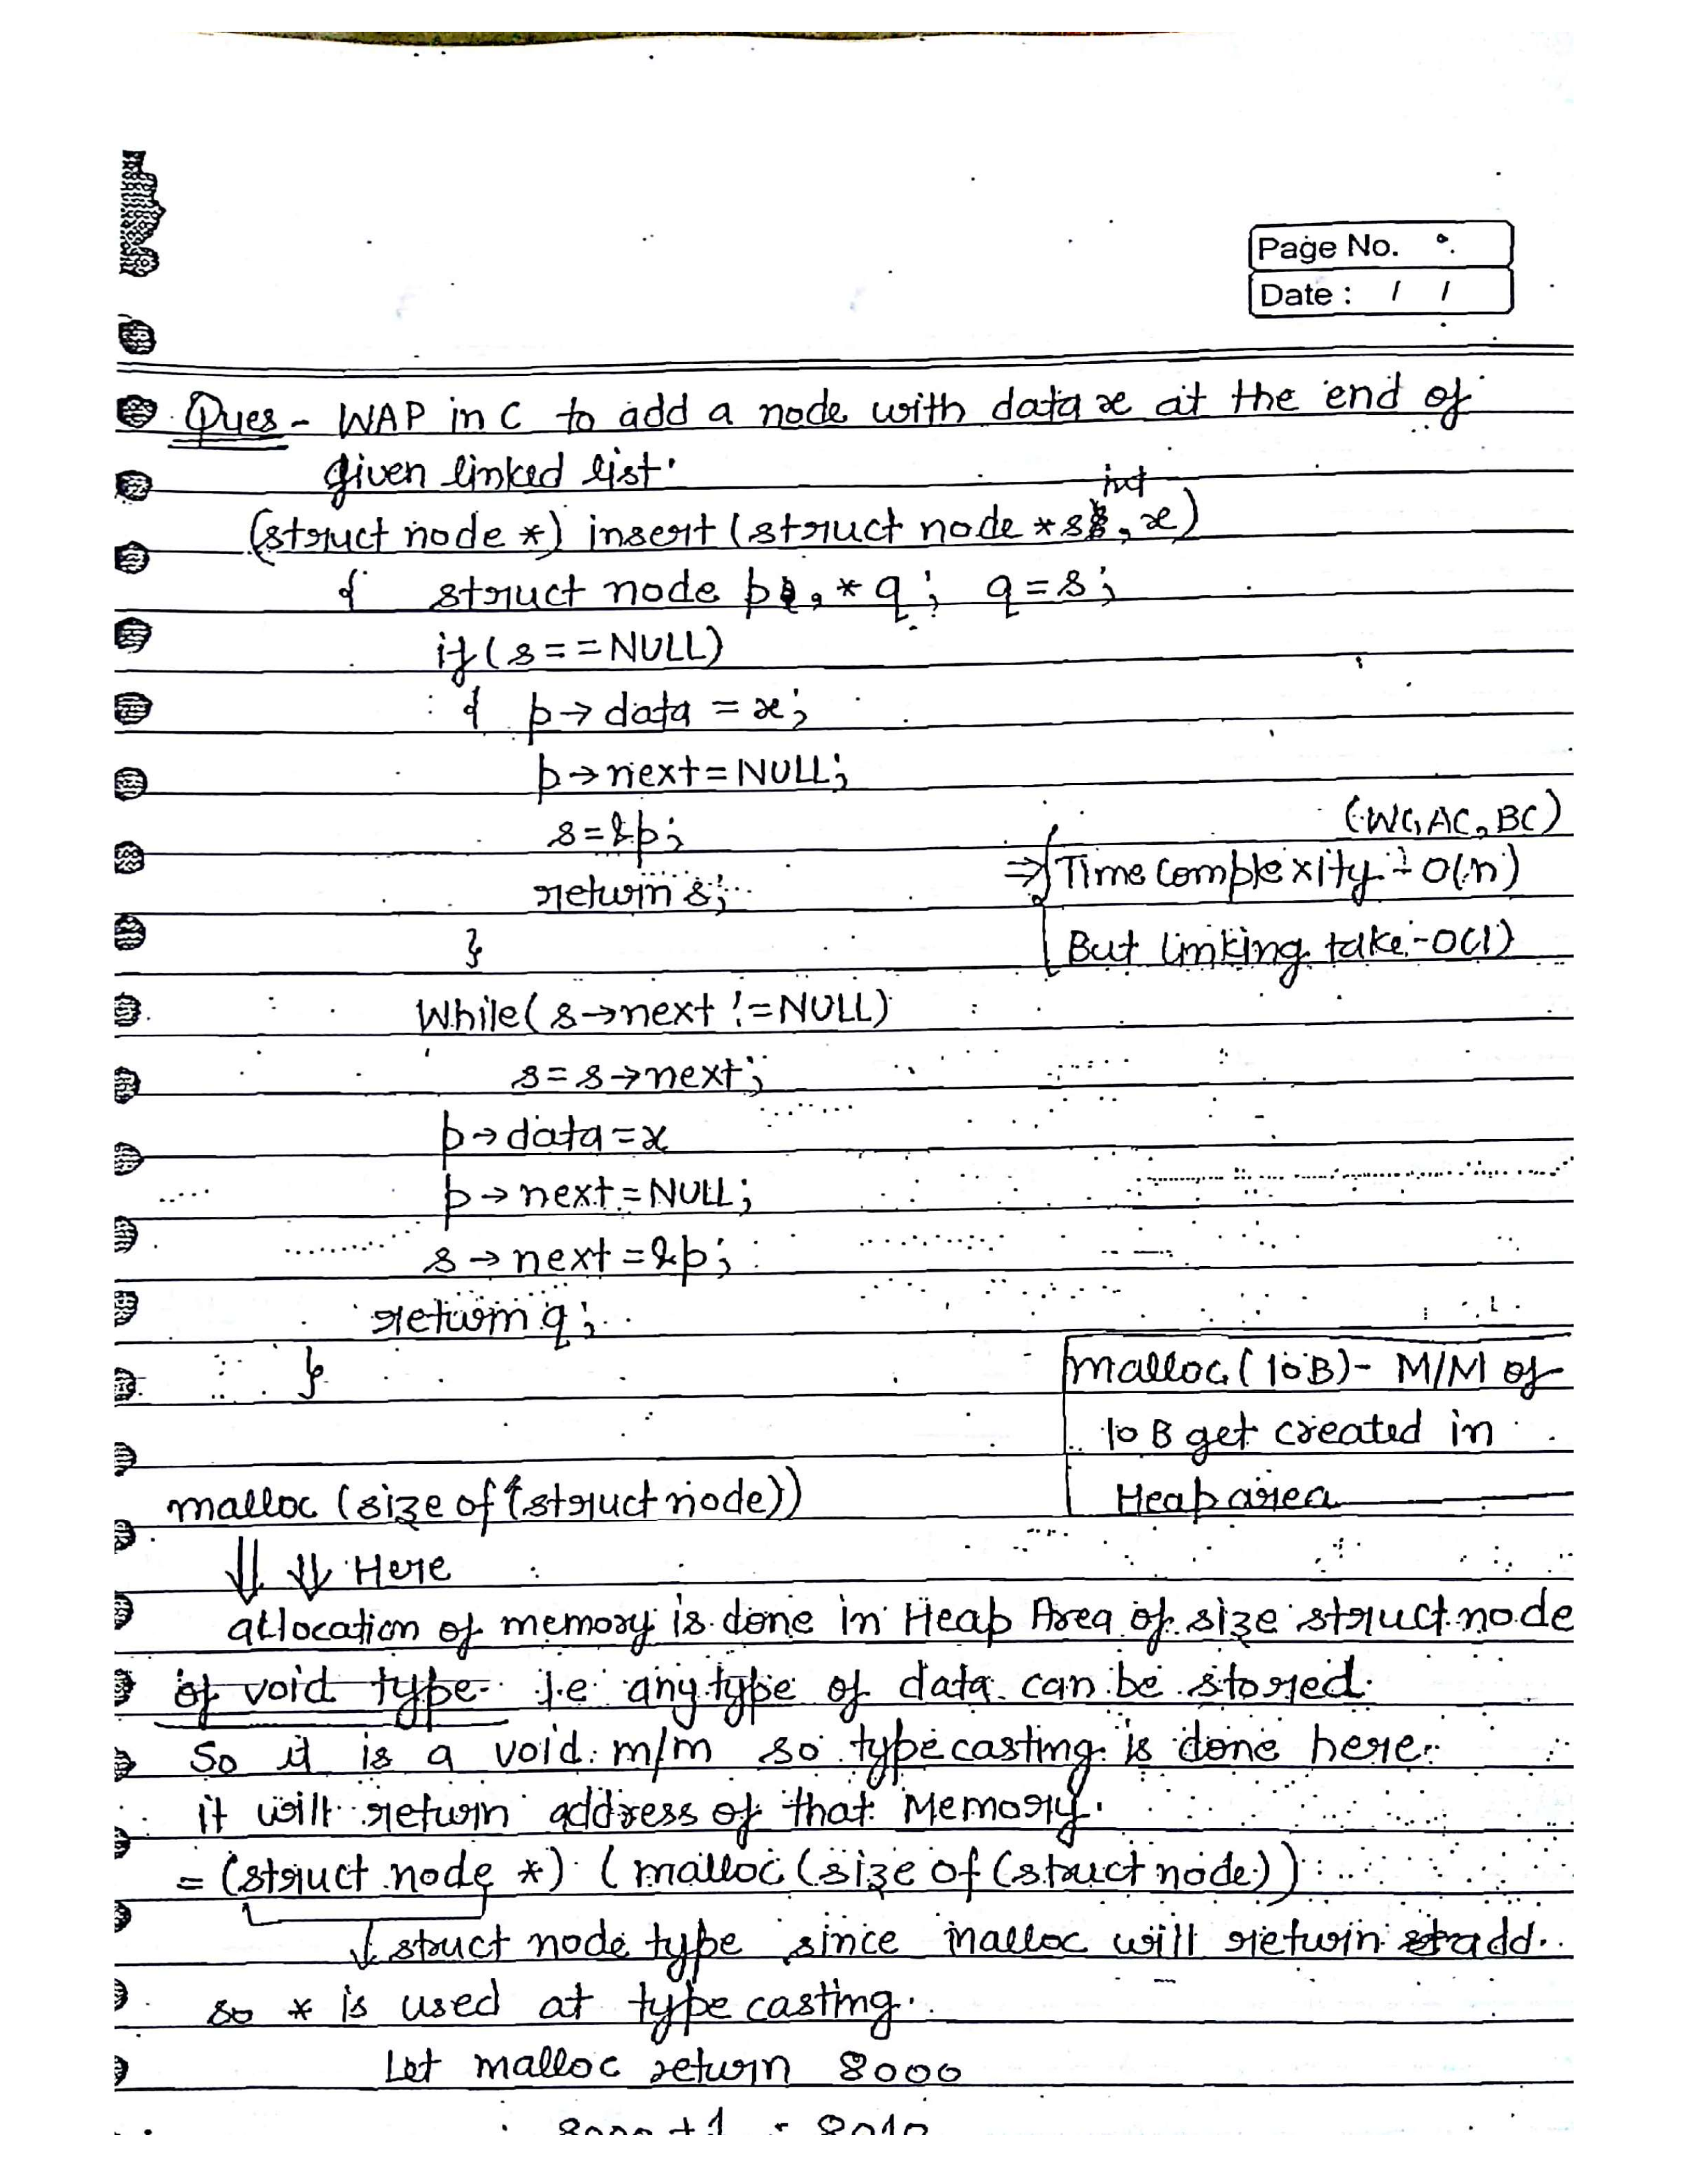 Page No.
Date : / /
Ques - WAP in C to add a node with data x at the end of
given linked list.
int
(struct node *) insert (struct node *s, x)
{ struct node p, *q; q=s;
if (s==NULL)
{ p→data = x;
p→next=NULL;
s=&p;
return s;
}
(WC, AC, BC)
⇒ Time complexity - O(n)
But linking take - O(1)
While(s→next != NULL)
s=s→next;
p→data=x
p→next=NULL;
s→next=&p;
return q;
}
malloc(10B)- M/M of
10 B get created in
Heap area
malloc (size of (struct node))
⇓ ⇓ Here
allocation of memory is done in Heap Area of size struct node
of void type. I.e any type of data can be stored.
So it is a void m/m so typecasting is done here.
it will return address of that Memory.
= (struct node *) (malloc (size of (struct node))
↓ struct node type since malloc will return add.
so * is used at type casting.
Let malloc return 8000
8000+1 = 8010